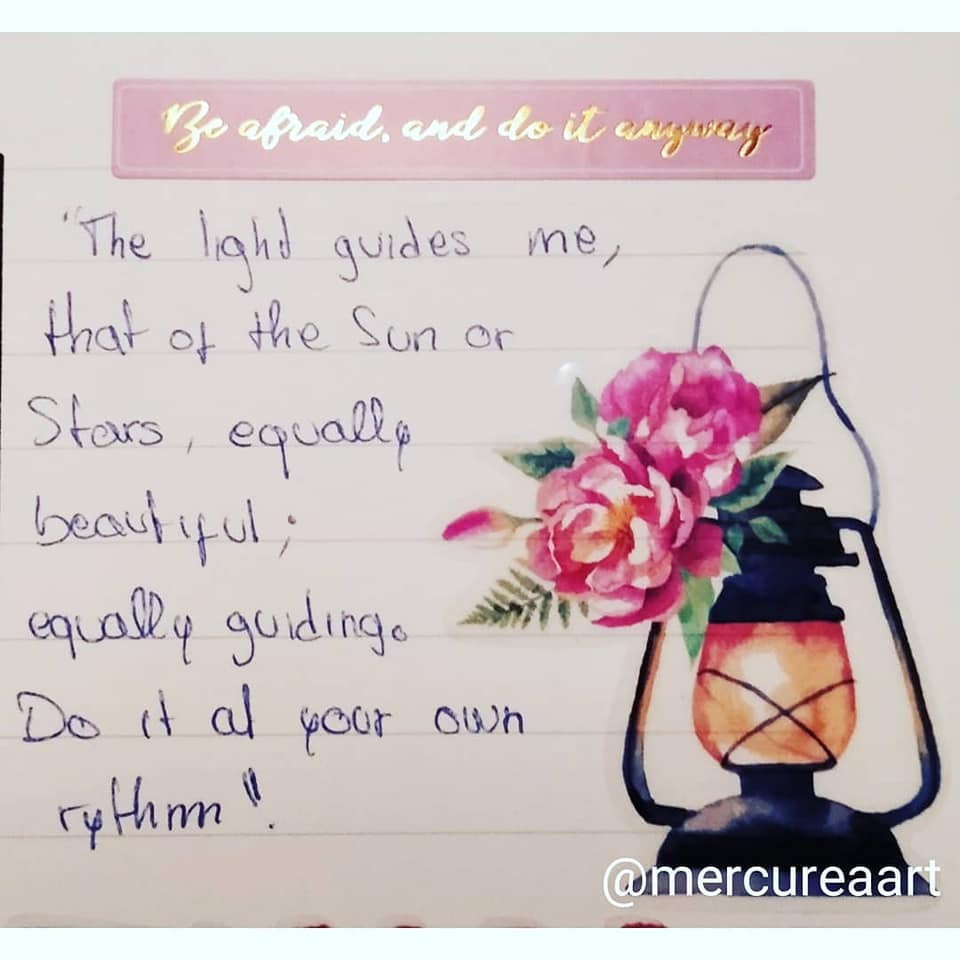 Be afraid, and do it anyway
"The light guides me,
that of the Sun or
Stars, equally
beautiful;
equally guiding.
Do it at your own
rythm".
@mercureaart